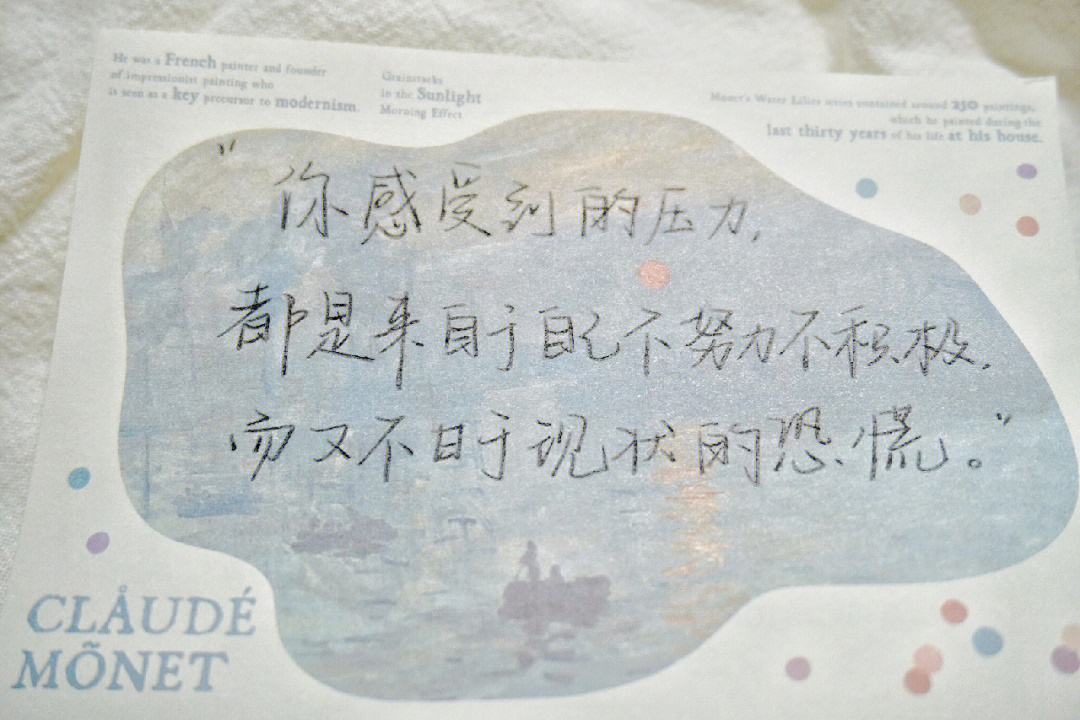 He was a French painter and founder
of impressionist painting who
is seen as a key precursor to modernism.
Grainstacks
in the Sunlight
Morning Effect
Monet's Water Lilies series contained around 250 paintings,
which he painted during the
last thirty years of his life at his house.
"你感受到的压力,
都是来自于自己不努力不积极.
而又不甘于现状的恐慌。"
CLÅUDÉ
MÕNET